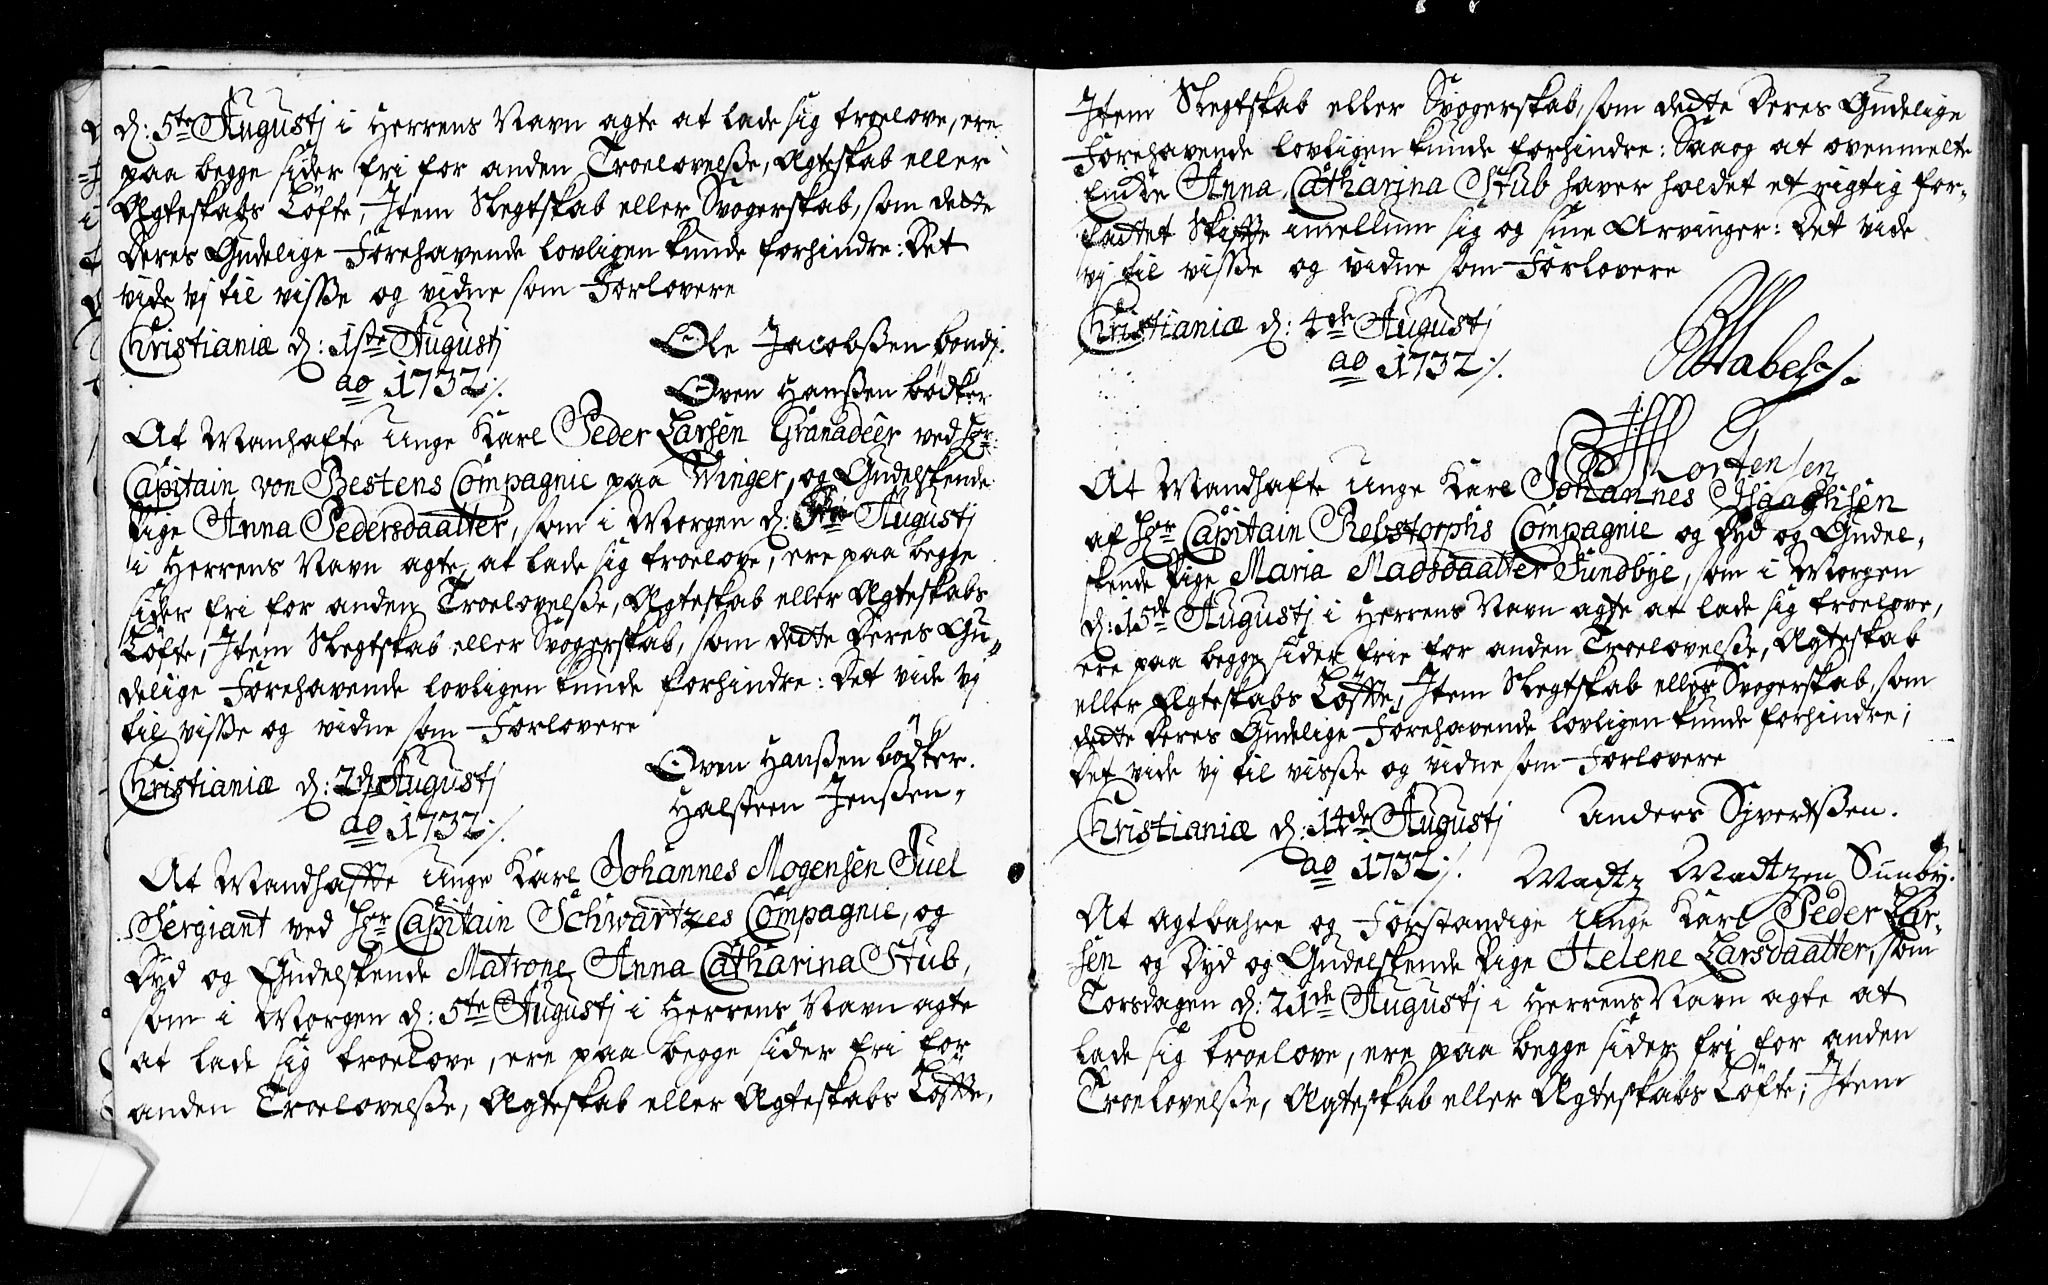 d: 5te Augustj i Herrens Navn agte at lade sig troelove, ere
paa begge sider fri for anden Troelovelsse, Ægteskab eller
Ægteskabs Löfte, Item Slegtskab eller Svogerskab, som dette
Deres Gudelige Forehavende lovligen kunde forhindre: Det
vide vj til visse og vidne som Forlovere
Christianiæ d: 1ste Augustj
ao 1732 ./.
Ole Jacobssen bondj.
Oven Hanssen bödker
At Manhafte Unge Karl Peder Larsen Granadeer ved Hr:
Capitain von Bestens Compagnie paa Winger, og Gudelskende
Pige Anna Pedersdaatter, som i Morgen d: Augustj
i Herrens Navn agte at lade sig troelove, ere paa begge
sider fri for anden Troelovelsse, Ægteskab eller Ægteskabs
Löfte, Item Slegtskab eller Svogerskab, som dette Deres Gu-
delige Forehavende lovligen kunde forhindre: Det vide vj
til visse og vidne som Forlovere
Christianiæ d: 2d Augustj
ao 1732 ./.
Oven Hanssen bödker.
Halsteen Jenssen
At Mandhaffte Unge Karl Johannes Mogensen Juel
Sergiant ved Hr Capitain Schwartzes Compagnie, og
Dyd og Gudelskende Matrone Anna Catharina Stub,
som i Morgen d: 5te Augustj i Herrens Navn agte
at lade sig troelove, ere paa begge sider fri for
anden Troelovelsse, Ægteskab eller Ægteskabs Löffte,
Item Slegtskab eller Svogerskab, som dette Deres Gudelige
Forehavende lovligen kunde forhindre: Saa og at ovenmelte
Enke Anna Catharina Stub haver holdet et rigtig for-
fattet Skiffte imellum sig og sine Arvinger: Det vide
vj til visse og vidne som Forlovere
Christianiæ d: 4de Augustj
ao 1732 ./.
Mortensen
At Mandhafte Unge Karl Johannes Isaachsen
af Hr Capitain Rebstorphs Compagnie og Dyd og Gudel-
skende Pige Maria Madsdaatter Sundbye, som i Morgen
d: 15de Augustj i Herrens Navn agte at lade sig troelove,
ere paa begge sider frie for anden Troelovelsse, Ægteskab
eller Ægteskabs Löffte, Item Slegtskab eller Svogerskab, som
dette Deres Gudelige Forehavende lovligen kunde forhindre;
Det vide vj til visse og vidne som Forlovere
Christianiæ d: 14de Augustj
ao 1732 ./.
Anders Sjvertssen.
Madtz Madtzen Sunby.
At Agtbahre og Forstandige Unge Karl Peder Lar-
sen og Dyd og Gudelskende Pige Helene Larsdaatter, som
Torsdagen d: 21de Augustj i Herrens Navn agte at
lade sig troelove, ere paa begge sider fri for anden
Troelovelsse, Ægteskab eller Ægteskabs Löfte; Item